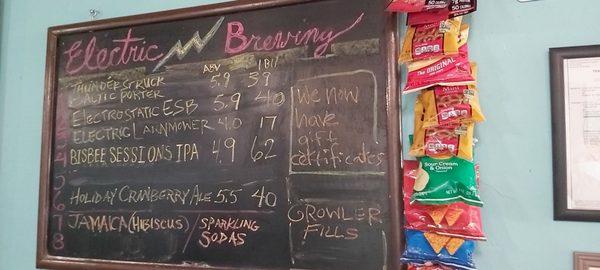 Electric Brewing
ABV IBU
THUNDERSTRUCK
BALTIC PORTER 5.9 39
ELECTROSTATIC ESB 5.9 40
ELECTRIC LAWNMOWER 4.0 17
BISBEE SESSIONS IPA 4.9 62
HOLIDAY CRANBERRY ALE 5.5 40
JAMAICA (HIBISCUS) / SPARKLING
SODAS
4
5
6
7
8
We now
have
gift
certificates
GROWLER
FILLS
Mini
The ORIGINAL
Mini
SOUR CREAM
& ONION